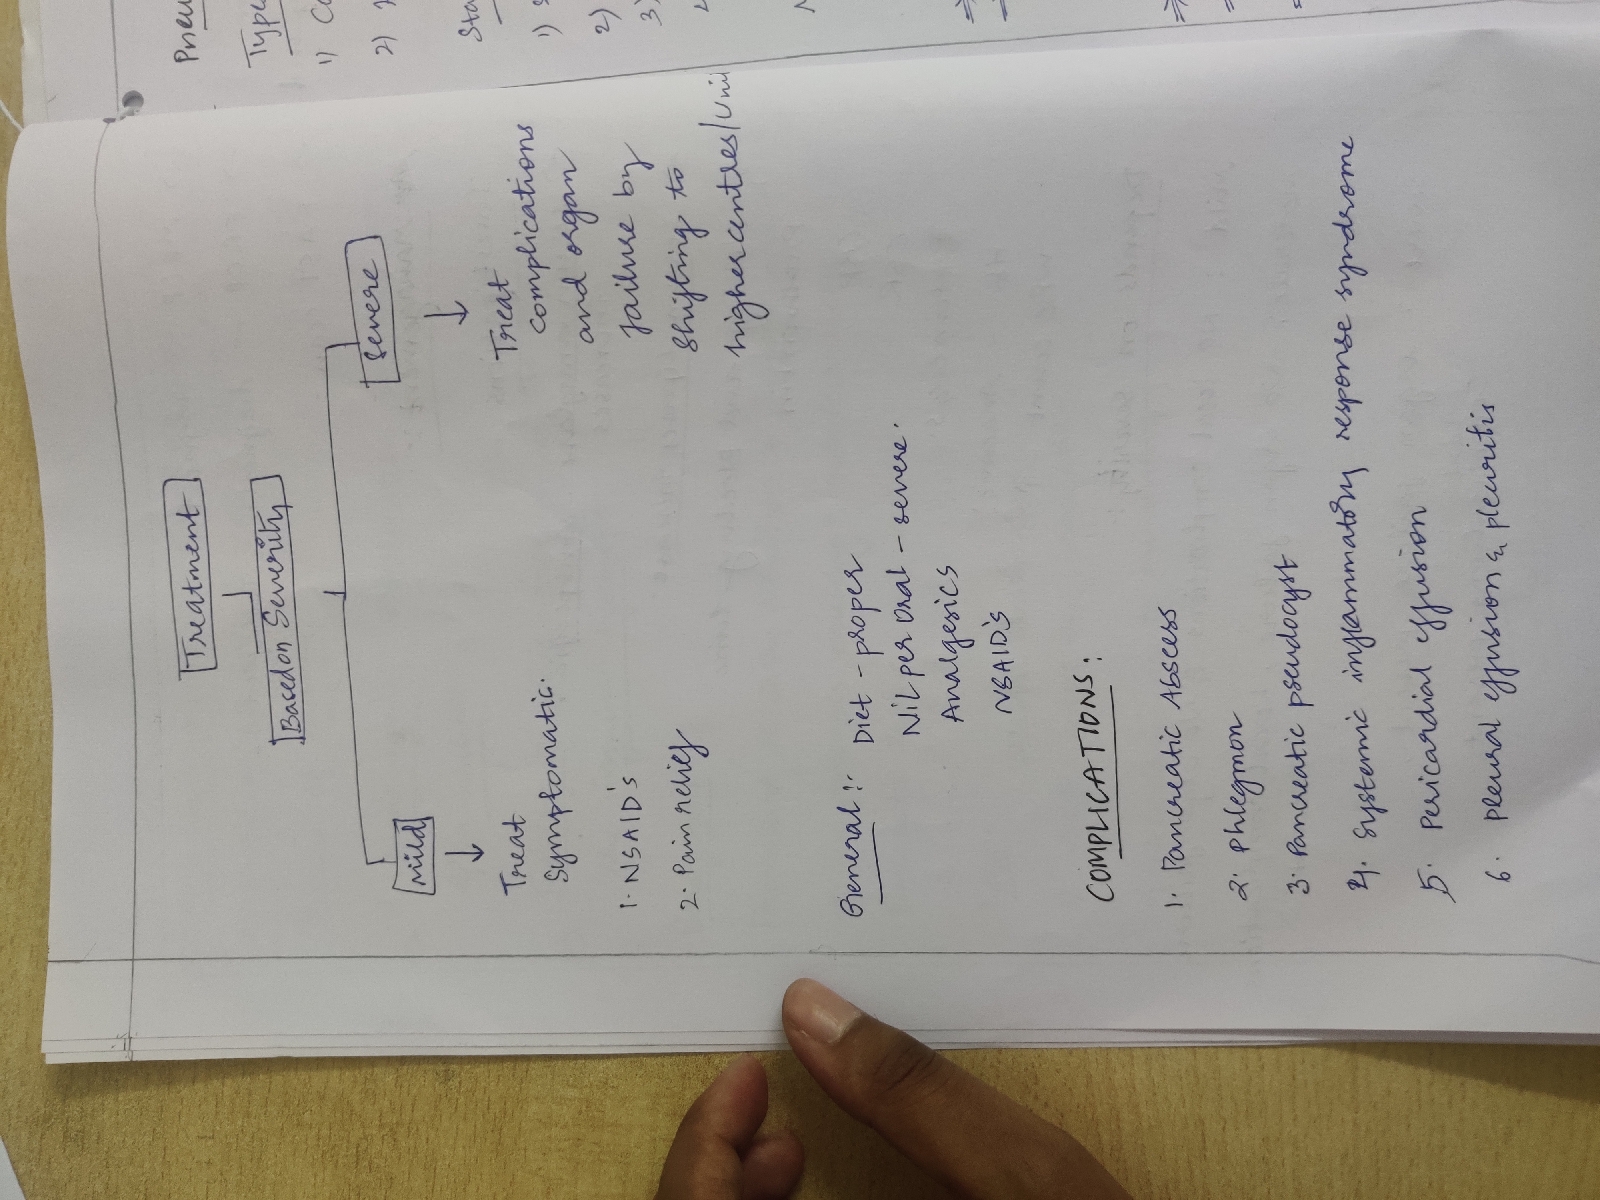 Treatment
Based on Severity
Mild
Severe
Treat
Symptomatic.
1. NSAID's
2. Pain relief
Treat
complications
and organ
failure by
Shifting to
higher centres/
General :- Diet - proper
Nil per Oral - severe.
Analgesics
NSAID's
COMPLICATIONS :
1. Pancreatic Abscess
2. Phlegmon
3. Pancreatic pseudocyst
4. Systemic inflammatory response syndrome
5. Pericardial effusion
6. pleural effusion & pleuritis
1)
2)
1)
2)
3)